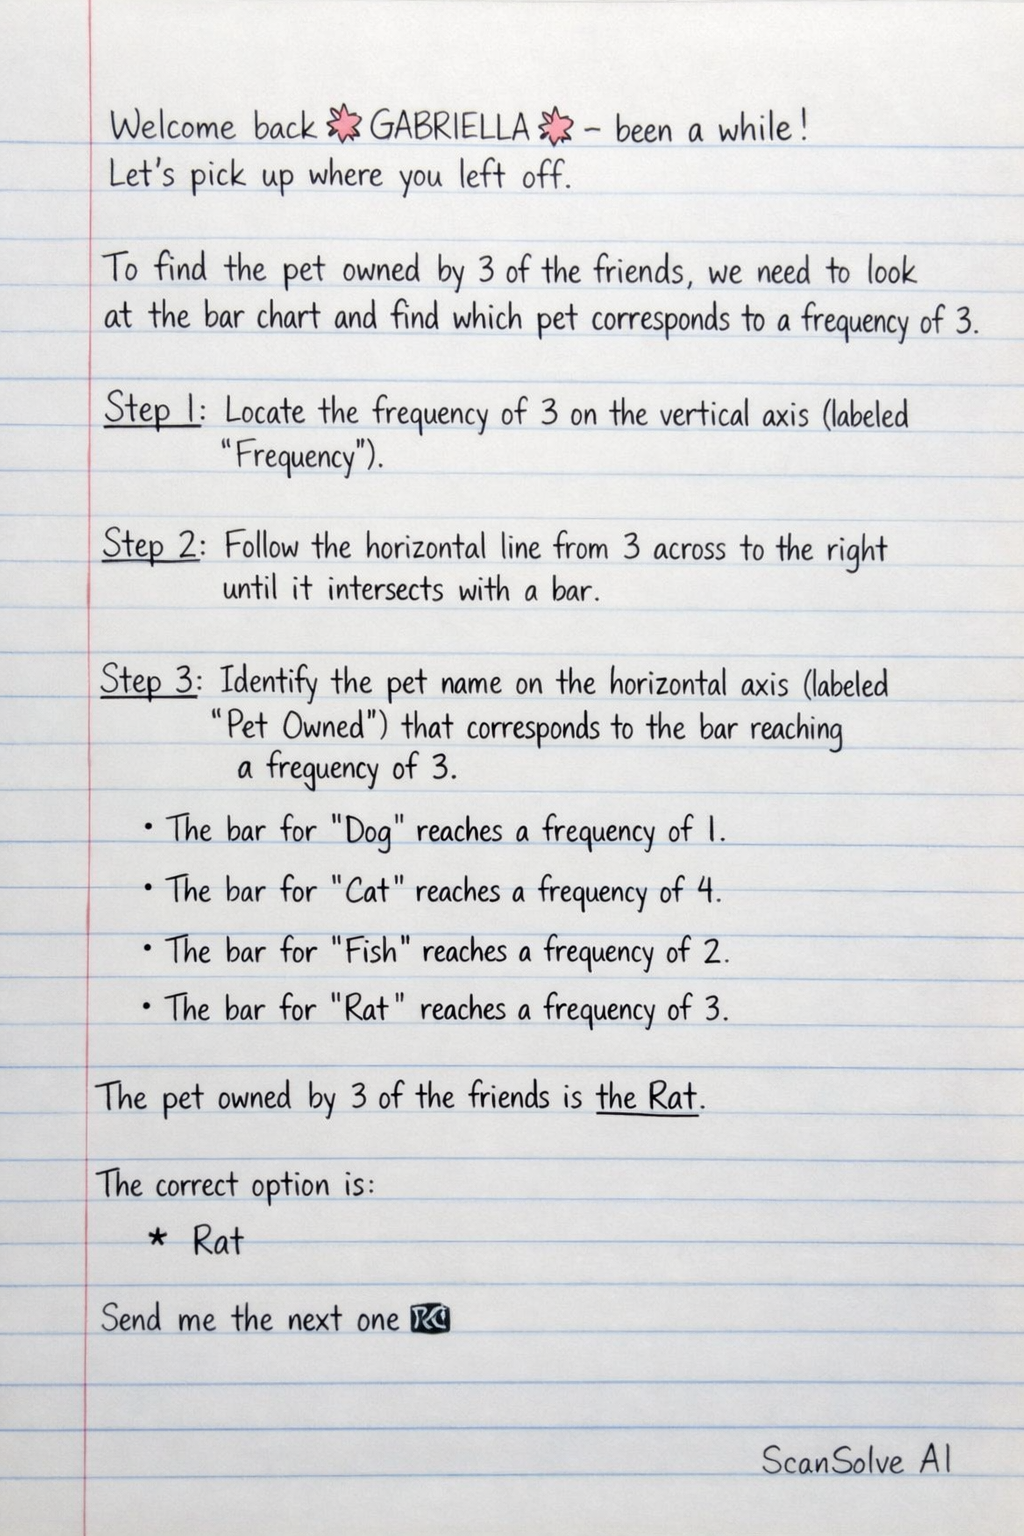 Welcome back GABRIELLA – been a while!
Let's pick up where you left off.
To find the pet owned by 3 of the friends, we need to look
at the bar chart and find which pet corresponds to a frequency of 3.
Step 1: Locate the frequency of 3 on the vertical axis (labeled
"Frequency").
Step 2: Follow the horizontal line from 3 across to the right
until it intersects with a bar.
Step 3: Identify the pet name on the horizontal axis (labeled
"Pet Owned") that corresponds to the bar reaching
a freguency of 3.
• The bar for "Dog" reaches a frequency of 1.
• The bar for "Cat" reaches a frequency of 4.
• The bar for "Fish" reaches a frequency of 2.
• The bar for "Rat" reaches a frequency of 3.
The pet owned by 3 of the friends is the Rat.
The correct option is:
* Rat
Send me the next one
ScanSolve AI